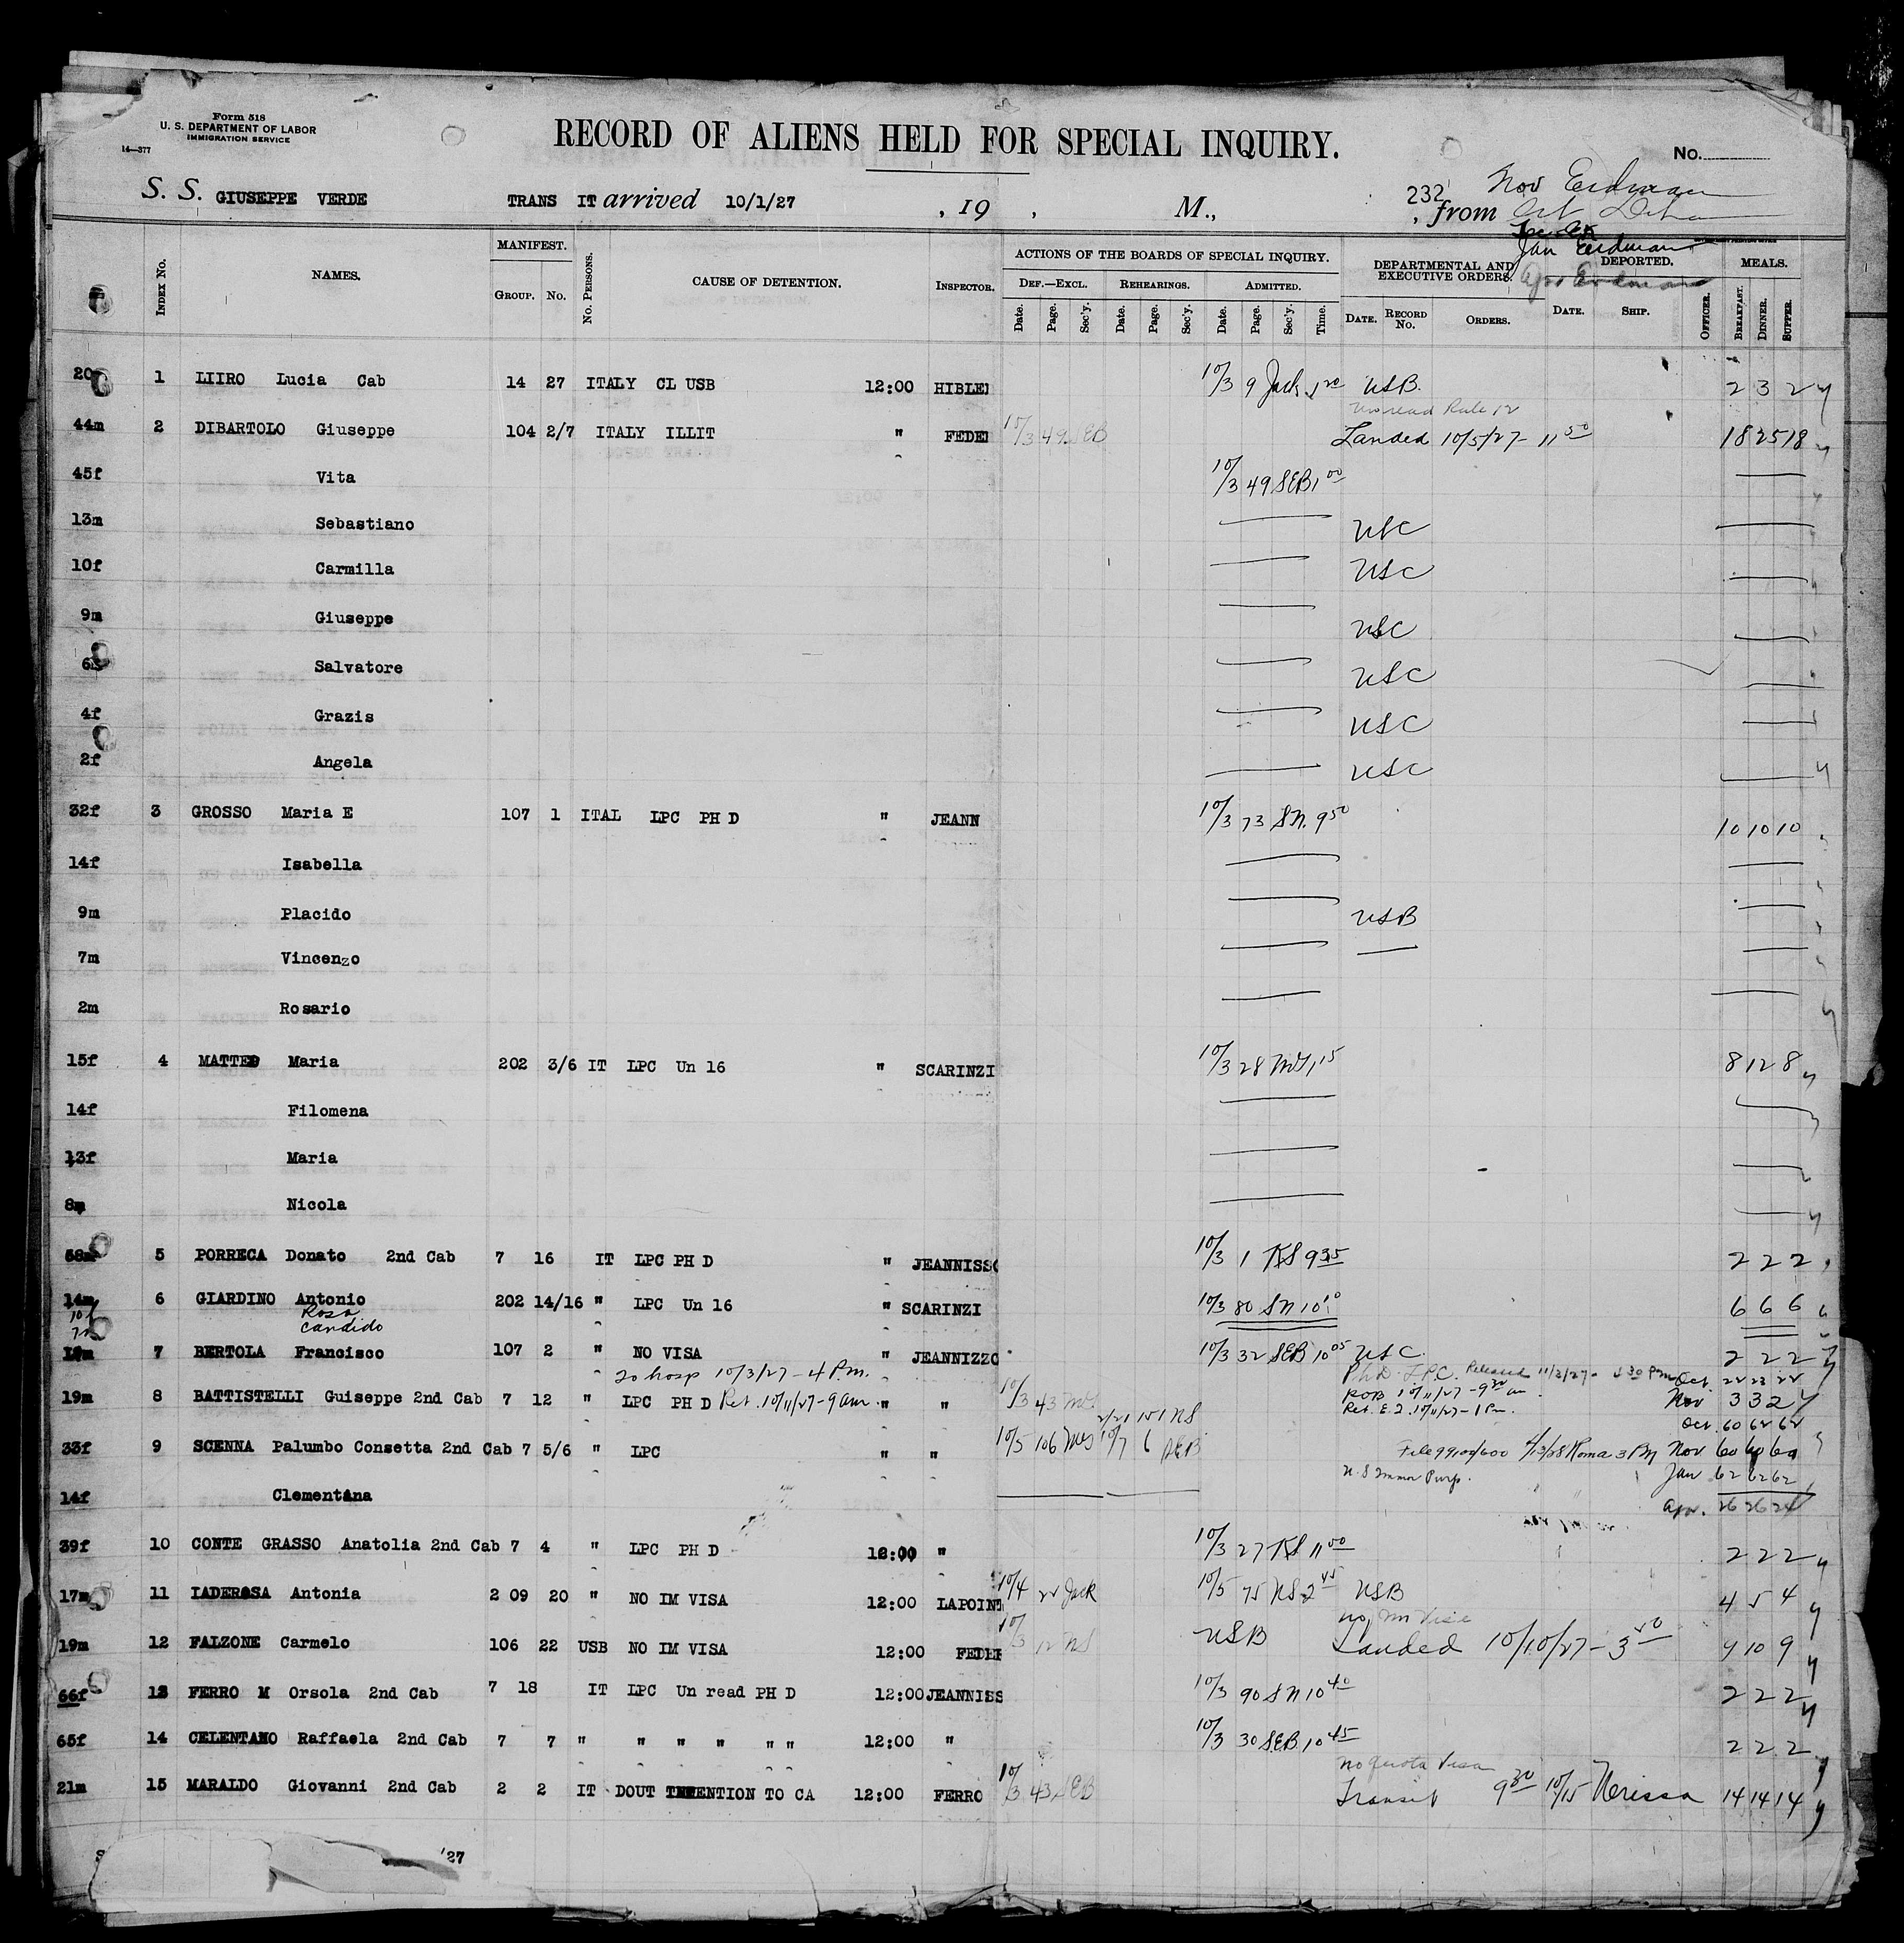 Form 518
U. S. DEPARTMENT OF LABOR
IMMIGRATION SERVICE
14—377
RECORD OF ALIENS HELD FOR SPECIAL INQUIRY.
No.
S. S. GIUSEPPE VERDE TRANS IT arrived 10/1/27 , 19 , M., 232 , from
Nov Erdman
Jan Erdman
INDEX No. NAMES. MANIFEST. GROUP. No. No. PERSONS. CAUSE OF DETENTION. INSPECTOR. ACTIONS OF THE BOARDS OF SPECIAL INQUIRY. DEF.—EXCL. Date. Page. Sec'y. REHEARINGS. Date. Page. Sec'y. ADMITTED. Date. Page. Sec'y. Time. DEPARTMENTAL AND EXECUTIVE ORDERS. DATE. RECORD No. ORDERS. DEPORTED. DATE. SHIP. OFFICER. MEALS. BREAKFAST. DINNER. SUPPER.
20 1 LIIRO Lucia Cab 14 27 ITALY CL USB 12:00 HIBLE 10/3 9 Jack 1 20 USB. 2 3 2
Rule 12
44m 2 DIBARTOLO Giuseppe 104 2/7 ITALY ILLIT " FEDE 10/3 49 SEB Landed 10/5/27- 11 50 18 25 18
45f Vita 10/3 49 SEB 1 00
13m Sebastiano USC
10f Carmilla USC
9m Giuseppe USC
6 Salvatore USC
4f Grazis USC
2f Angela USC
32f 3 GROSSO Maria E 107 1 ITAL LPC PH D " JEANN 10/3 73 SN. 9 50 10 10 10
14f Isabella
9m Placido USB
7m Vincenzo
2m Rosario
15f 4 MATTEO Maria 202 3/6 IT LPC Un 16 " SCARINZI 10/3 28 1 15 8 12 8
14f Filomena
13f Maria
8m Nicola
58m 5 PORRECA Donato 2nd Cab 7 16 IT LPC PH D " JEANNISSO 10/3 1 KS 9 35 2 2 2
14m 6 GIARDINO Antonio 202 14/16 " LPC Un 16 " SCARINZI 10/3 80 SN 10 10 6 6 6
10f Rosa
7 Candido
7 BERTOLA Francisco 107 2 " NO VISA " JEANNIZZO 10/3 32 SEB 10 05 USC. 2 2 2
To hosp 10/3/27 - 4 P.m. Ph D LPC. Released 11/2/27 Oct
19m 8 BATTISTELLI Guiseppe 2nd Cab 7 12 " LPC PH D Ret. 10/11/27-9 am. " " 10/3 43 10/11/27 - 9 30 am Nov 3 3 2
Ret. 10/11/27 - 1 Pm. Oct. 60 62 62
33f 9 SCENNA Palumbo Consetta 2nd Cab 7 5/6 " LPC " " 10/5 106 10/7 6 SEB 2/21 151 NS File 99100/600 4/13/28 Roma 3 PM Nov 60 60 60
Jan 62 62 62
14f Clementina Apr. 26 26 24
39f 10 CONTE GRASSO Anatolia 2nd Cab 7 4 " LPC PH D " 10/3 27 KS 11 50 2 2 2
17m 11 IADEROSA Antonia 2 09 20 " NO IM VISA 12:00 LAPOINT 10/4 22 Jack 10/5 75 NS 2 45 USB 4 5 4
No Im Visa
19m 12 FALZONE Carmelo 106 22 USB NO IM VISA 12:00 FEDER 10/3 12 NS USB Landed 10/10/27 - 3 50 9 10 9
66f 13 FERRO M Orsola 2nd Cab 7 18 IT LPC Un read PH D 12:00 JEANNISS 10/3 90 SN 10 40 2 2 2
65f 14 CELENTANO Raffaela 2nd Cab 7 7 " " " " " " 12:00 " 10/3 30 SEB 10 45 2 2 2
No quota Visa
21m 15 MARALDO Giovanni 2nd Cab 2 2 IT DOUT INTENTION TO CA 12:00 FERRO 10/3 43 SEB Transit 9 30 10/15 Nerissa 14 14 14
'27